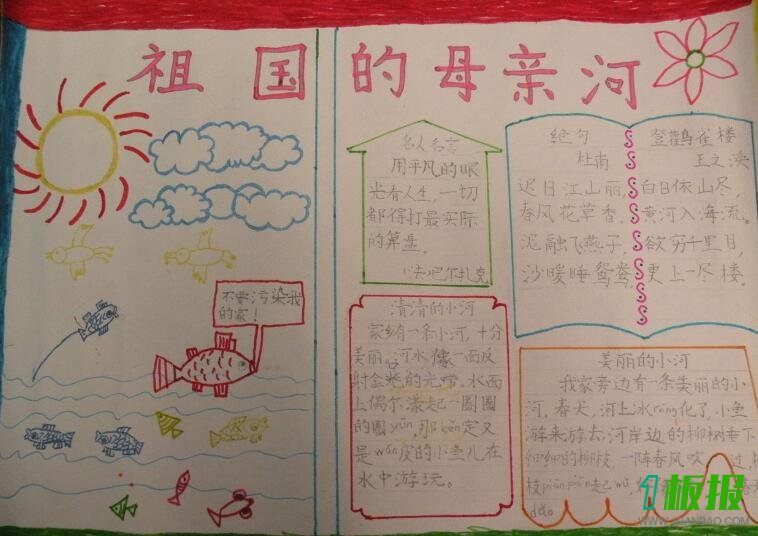 祖国的母亲河
不要污染我
的家！
名人名言
用平凡的眼
光看人生，一切
都得打最实际
的算盘。
(法)巴尔扎克
绝句
杜甫
迟日江山丽，
春风花草香。
泥融飞燕子，
沙暖睡鸳鸯。
登鹳雀楼
王之涣
白日依山尽，
黄河入海流。
欲穷千里目，
更上一层楼。
清清的小河
家乡有一条小河，十分
美丽。河水像一面反
射金
的光带。水面
上偶尔漾起一圈圈
的圆yūn，那kěn定又
是wán皮的小鱼儿在
水中游玩。
美丽的小河
我家旁边有一条美丽的小
河，春天，河上冰róng化了，小鱼
游来游去，河岸边的柳树垂下
细细的柳枝，一阵春风吹过，柳
枝piān piān起wǔ，
1板报
WWW.1BANBAO.COM